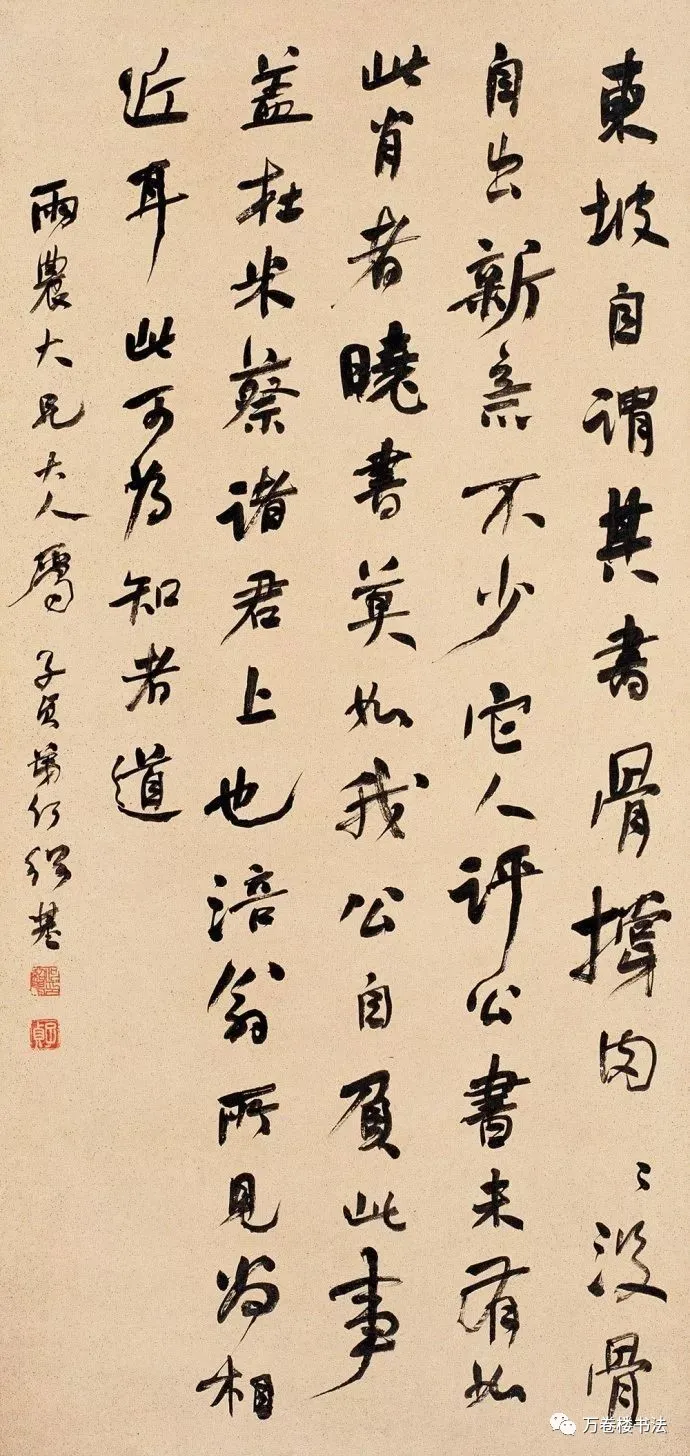 東坡自謂其書骨撐肉〻沒骨
自出新意不少它人評公書未有如
此肖者曉書莫如我公自負此事
盖在米蔡諸君上也涪翁所見為相
近耳此可為知者道
雨農大兄大人屬 子貞弟何紹基
子貞
万卷楼书法